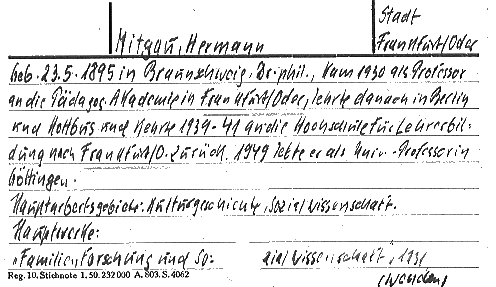 Stadt
Mitgau, Hermann Frankfurt/Oder
geb. 23.5.1895 in Braunschweig, Dr. phil., kam 1930 als Professor
an die Pädagog. Akademie in Frankfurt/Oder, lehrte danach in Berlin
und Kottbus und kehrte 1939-41 an die Hochschule für Lehrerbil-
dung nach Frankfurt/O. zurück. 1949 lebte er als Univ.-Professor in
Göttingen.
Hauptarbeitsgebiete: Kulturgeschichte, Sozialwissenschaft.
Hauptwerke:
"Familienforschung und So= zialwissenschaft", 1931
Reg. 10. Stichnote 1. 50. 232000 A. 803. S. 4062
(wenden)